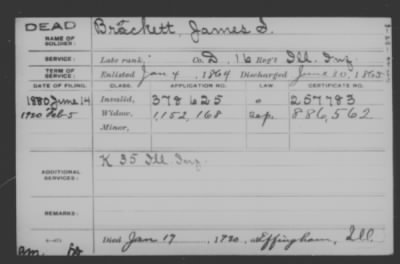 DEAD
NAME OF SOLDIER: Brackett, James S.
SERVICE: Late rank, Co. D, 16 Reg't Ill. Inf.
TERM OF SERVICE: Enlisted Jan 4, 1864 Discharged June 30, 1865
DATE OF FILING. CLASS. APPLICATION NO. LAW CERTIFICATE NO.
1880 June 14 Invalid, 378625 257783
1920 Feb-5 Widow, 1,152,168 886,562
Minor,
K 35 Ill. Inf.
ADDITIONAL SERVICES:
REMARKS:
Died Jan 19, 1920, at Effingham, Ill.